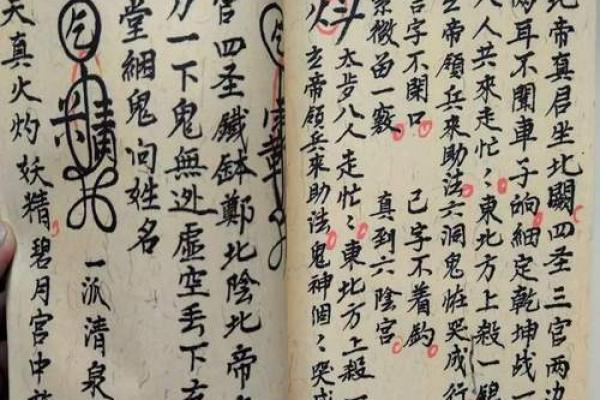 北帝真君坐北闕四圣三官两边
两耳不闻車子响細定乾坤战一
人人共來走忙：東北方上殺一
玄帝領兵來助法六洞鬼怪哭成行
吉字不開口 己字不着鈎
紫微留一竅 真到六陰宫
大步八人走忙：東北方上殺一
玄帝領兵來助法鬼神個：哭成
官四圣鐵鉢鄭北陰北帝
刀一下鬼無迯虛空丢下
堂綑鬼问姓名
一派清泉
天真火灼妖精碧月宫中